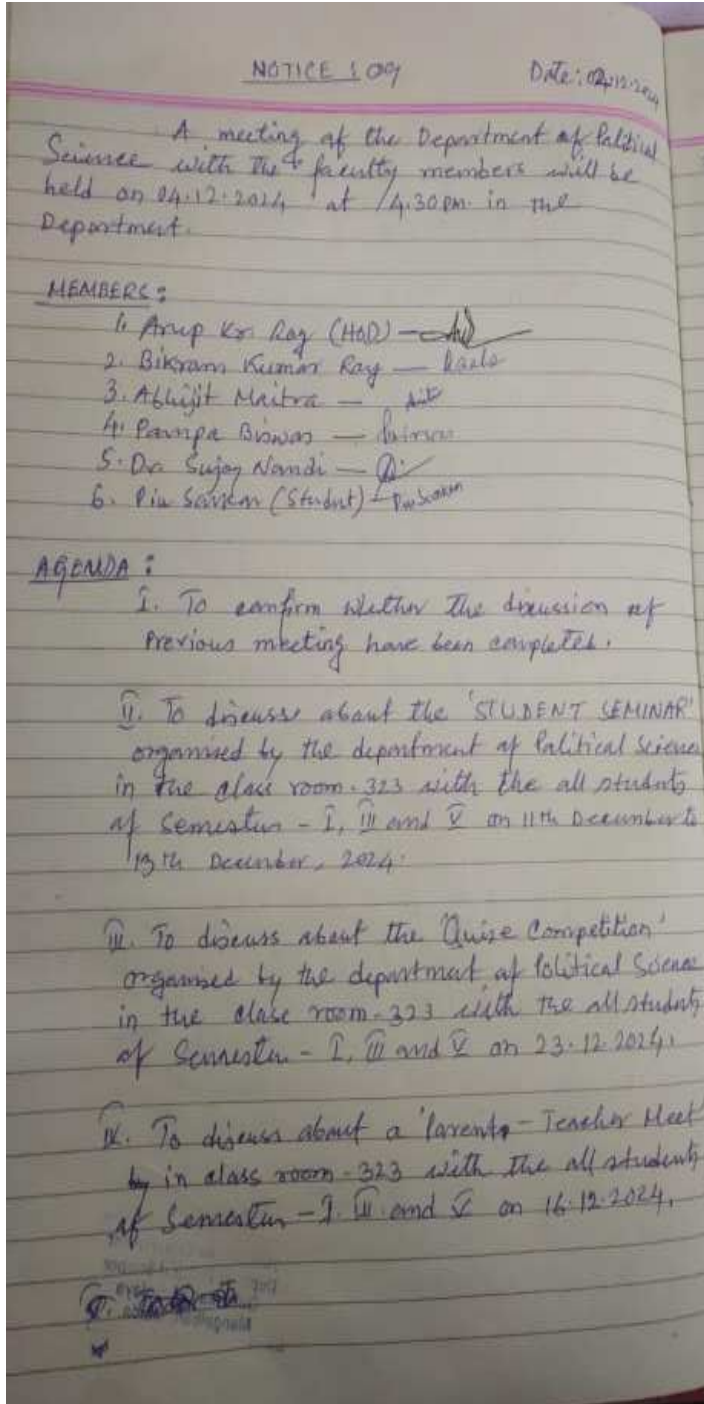 NOTICE : 09 Date: 02.12.2024
A meeting of the Department of Political
Science with the faculty members will be
held on 04.12.2024 at 4.30 PM. in the
Department.
MEMBERS :
1. Arup Kr. Ray (HOD) —
2. Bikram Kumar Ray —
3. Abhijit Maitra —
4. Pampa Biswas —
5. Dr. Sujay Nandi —
6. Piu Sarkar (Student) — Piu Sarkar
AGENDA :
I. To confirm whether the discussion of
Previous meeting have been completed.
II. To discuss about the 'STUDENT SEMINAR'
organised by the department of Political Science
in the class room - 323 with the all students
of Semester - I, III and V on 11th December to
13th December, 2024.
III. To discuss about the 'Quize Competition'
organised by the department of Political Science
in the class room - 323 with the all students
of Semester - I, III and V on 23.12.2024.
IV. To discuss about a 'Parents - Teacher Meet'
in class room - 323 with the all students
of Semester - I. III and V on 16.12.2024.
V.